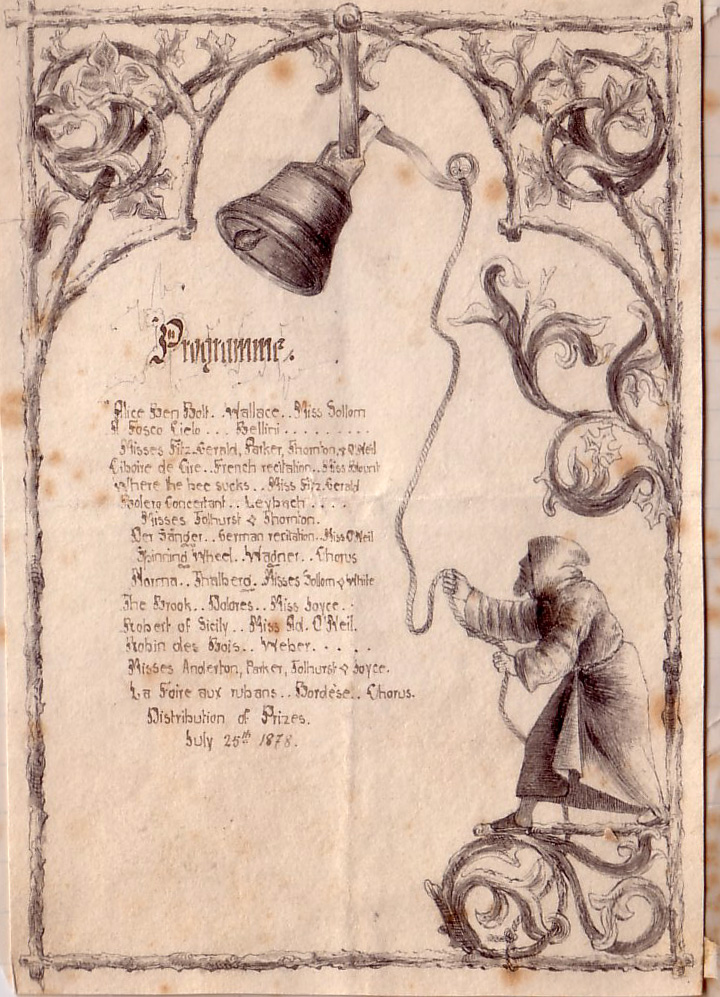 Programme.
Alice Ben Bolt.. Wallace.. Miss Sollom
Il Fosco Cielo.... Bellini.........
Misses Fitz-Gerald, Parker, Thornton, & O'Neil
Ciboire de Cire.. French recitation.. Miss Blount
Where the bee sucks.. Miss Fitz-Gerald
Bolero Concertant.. Leybach....
Misses Tolhurst & Thornton.
Der Sänger.. German recitation.. Miss O'Neil
Spinning Wheel.. Wagner.. Chorus
Norma.. Thalberg. Misses Sollom & White
The Brook.. Dolores.. Miss Joyce..
Robert of Sicily.. Miss Ad. O'Neil.
Robin des Bois.. Weber......
Misses Anderton, Parker, Tolhurst & Joyce.
La Foire aux rubans.. Bordèse.. Chorus.
Distribution of Prizes.
July 25th 1878.